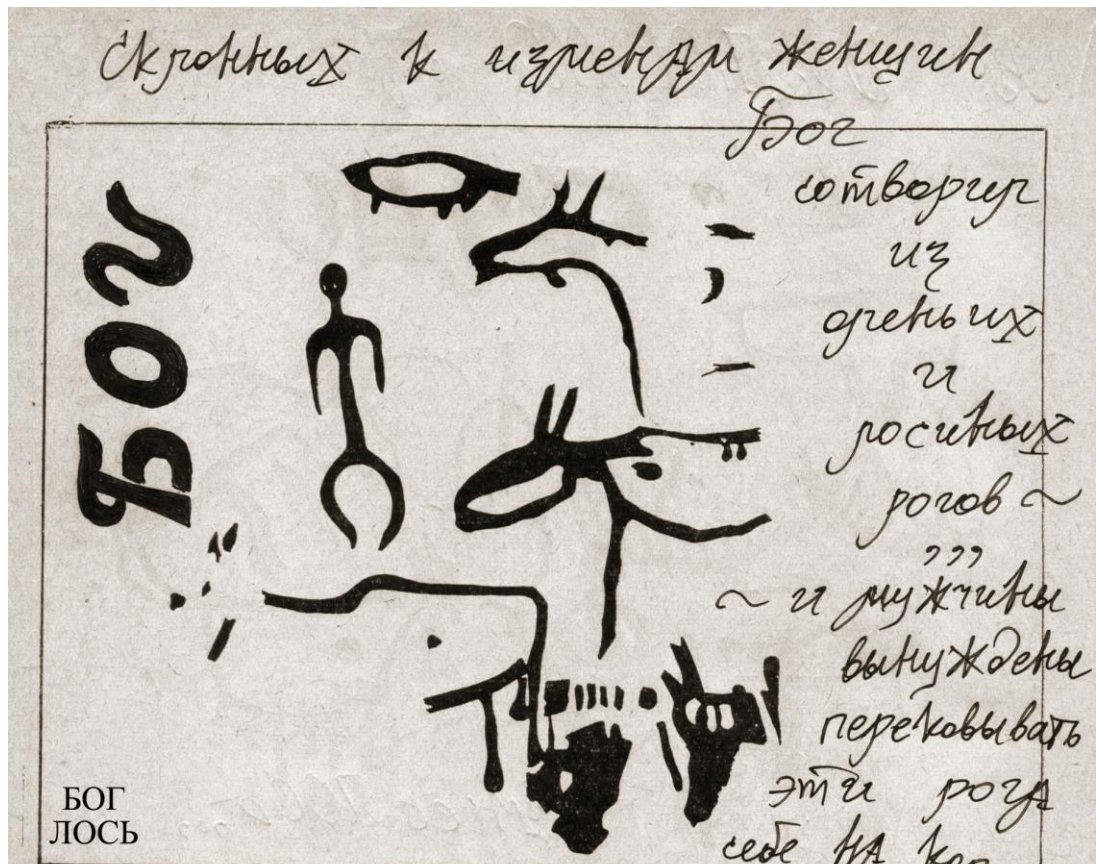 Склонных к изменам женщин
Бог
сотворил
из
оленьих
и
лосиных
рогов ~
,,,
~ и мужчины
вынуждены
перековывать
эти рога
себе на
Бог
БОГ
ЛОСЬ